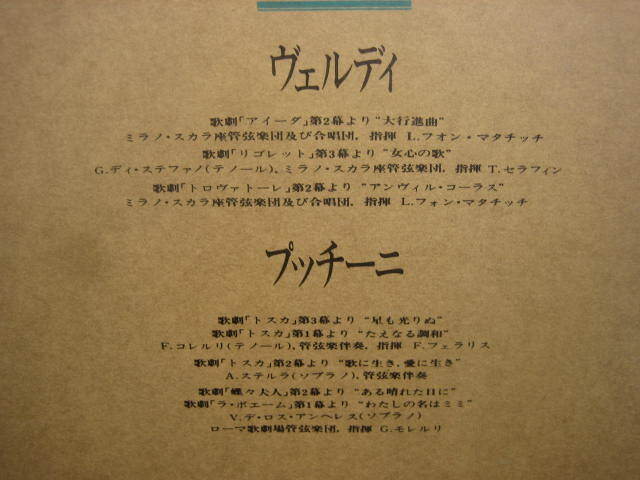 ヴェルディ
歌劇「アイーダ」第2幕より “大行進曲”
ミラノ・スカラ座管弦楽団及び合唱団, 指揮 L.フォン・マタチッチ
歌劇「リゴレット」第3幕より “女心の歌”
G.ディ・ステファノ(テノール), ミラノ・スカラ座管弦楽団, 指揮 T.セラフィン
歌劇「トロヴァトーレ」第2幕より “アンヴィル・コーラス”
ミラノ・スカラ座管弦楽団及び合唱団, 指揮 L.フォン・マタチッチ
プッチーニ
歌劇「トスカ」第3幕より “星も光りぬ”
歌劇「トスカ」第1幕より “たえなる調和”
F.コレルリ(テノール), 管弦楽伴奏, 指揮 F.フェラリス
歌劇「トスカ」第2幕より “歌に生き, 愛に生き”
A.ステルラ(ソプラノ), 管弦楽伴奏
歌劇「蝶々夫人」第2幕より “ある晴れた日に”
歌劇「ラ・ボエーム」第1幕より “わたしの名はミミ”
V.デ・ロス・アンヘレス(ソプラノ)
ローマ歌劇場管弦楽団, 指揮 G.モレルリ